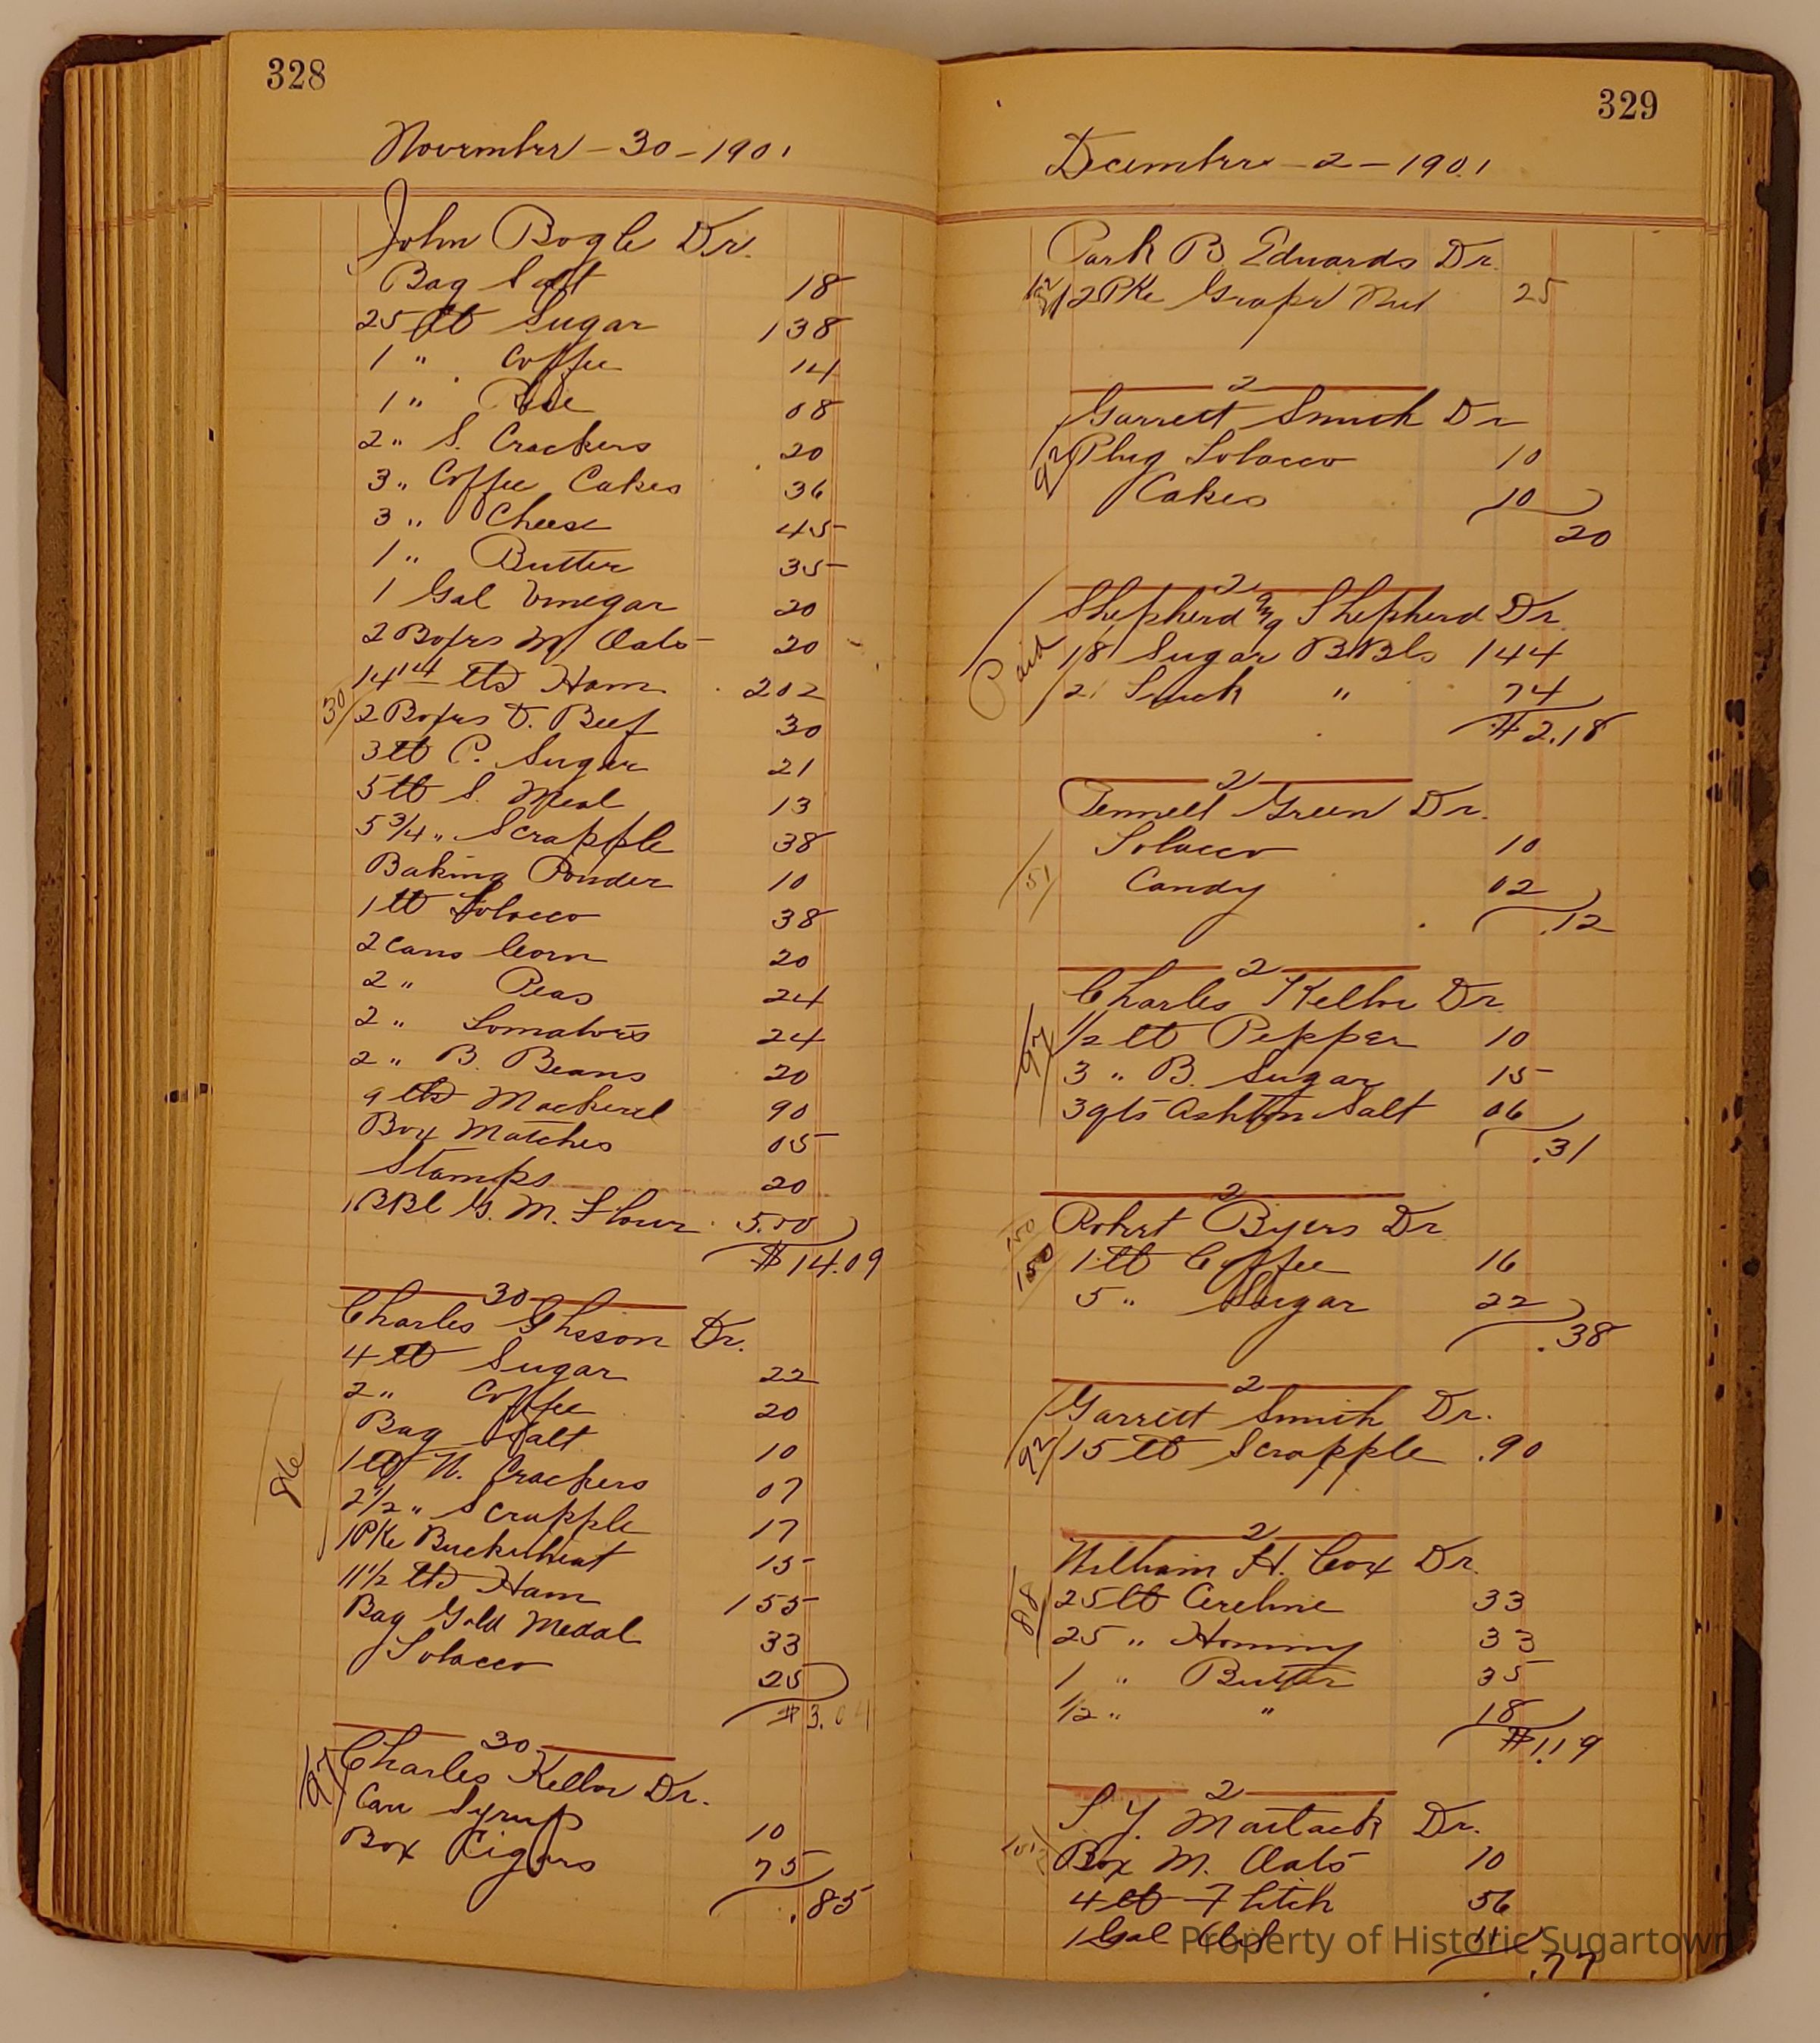 328
November - 30 - 1901
John Bogle Dr.
Bag Salt 18
25 lb Sugar 138
1 " Coffee 14
1 " Rice 08
2 " S. Crackers 20
3 " Coffee Cakes 36
3 " Cheese 45
1 " Butter 35
1 Gal Vinegar 20
2 Boxes M Oats 20
14 14 lbs Ham 202
30 2 Boxes D. Beef 30
3 lb P. Sugar 21
5 lb S. Meal 13
5 3/4 " Scrapple 38
Baking Powder 10
1 lb Tobacco 38
2 Cans Corn 20
2 " Peas 24
2 " Tomatoes 24
2 " B. Beans 20
9 lbs Mackerel 90
Box Matches 05
Stamps 20
1 BBl G. M. Flour 5.00
$14.09
30
Charles Dr.
4 lb Sugar 22
2 " Coffee 20
Bag Salt 10
1 lb N. Crackers 07
2 1/2 " Scrapple 17
86 1 PKe Buckwheat 15
11 1/2 lbs Ham 155
Bag Gold Medal 33
Tobacco 25
$3.04
30
97 Charles Keller Dr.
Can Syrup 10
Box Cigars 75
.85
329
December - 2 - 1901
Park B. Edwards Dr.
2 PKe Grape Nut 25
2
Garrett Smith Dr
92 Plug Tobacco 10
Cakes 10
20
2
Shepherd & Shepherd Dr.
Paid 18 Sugar BBls 144
2 " 74
$2.18
2
Green Dr.
Tobacco 10
51 Candy 02
.12
2
Charles Keller Dr
97 1/2 lb Pepper 10
3 " B. Sugar 15
3 qts Ashton Salt 06
.31
2
Robert Byers Dr
150 1 lb Coffee 16
5 " Sugar 22
.38
2
Garrett Smith Dr.
92 15 lb Scrapple .90
2
William H. Cox Dr.
88 25 lb Cereline 33
25 " Hominy 33
1 " Butter 35
1/2 " " 18
$1.19
2
S. Y. Dr.
Box M. Oats 10
4 lb Flitch 56
1 Gal Oil 11
.77
Property of Historic Sugartown